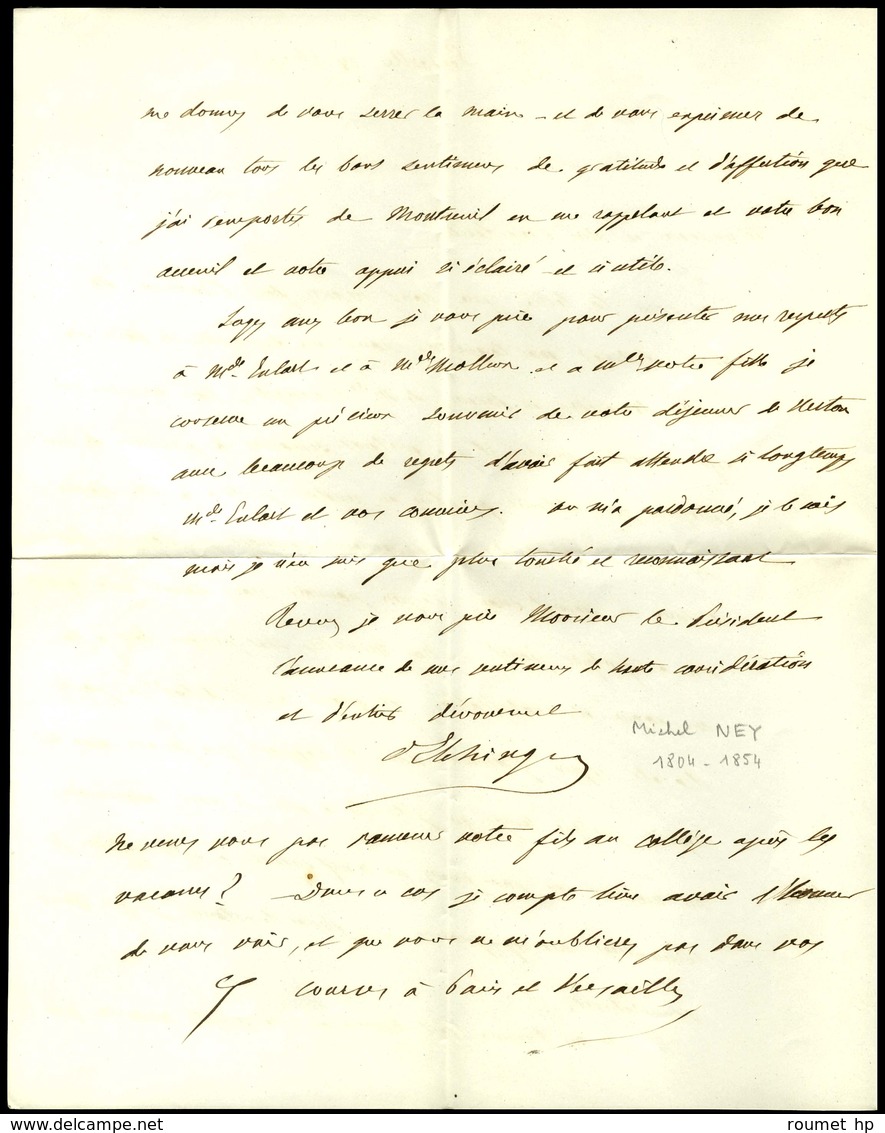 me donnez de vous serrer la main - et de vous exprimer de
nouveau tous les bons sentimens de gratitude et d'affection que
j'ai remportés de Montreuil en me rappelant et votre bon
accueil et votre appui si éclairé - et si utile.
Soyez assez bon je vous prie pour présenter mes respects
à Mde Enlart et à Mde et a Mlle votre fille je
conserve un précieux souvenir de votre déjeuner de
avec beaucoup de regrets d'avoir fait attendre si longtemps
Mde Enlart et vos convives. on m'a pardonné, je le sais
mais je n'en suis que plus touché et reconnaissant
Recevez je vous prie Monsieur le Président
l'assurance de mes sentimens de haute considération
et d'entier dévouement
d'Elchingen
Michel NEY
1804 - 1854
Ne venez vous pas ramener votre fils au collège après les
vacances? Dans ce cas je compte bien avoir l'honneur
de vous voir, et que vous ne m'oublierez pas dans vos
courses à Paris et Versailles
www.delcampe.net
roumet hp